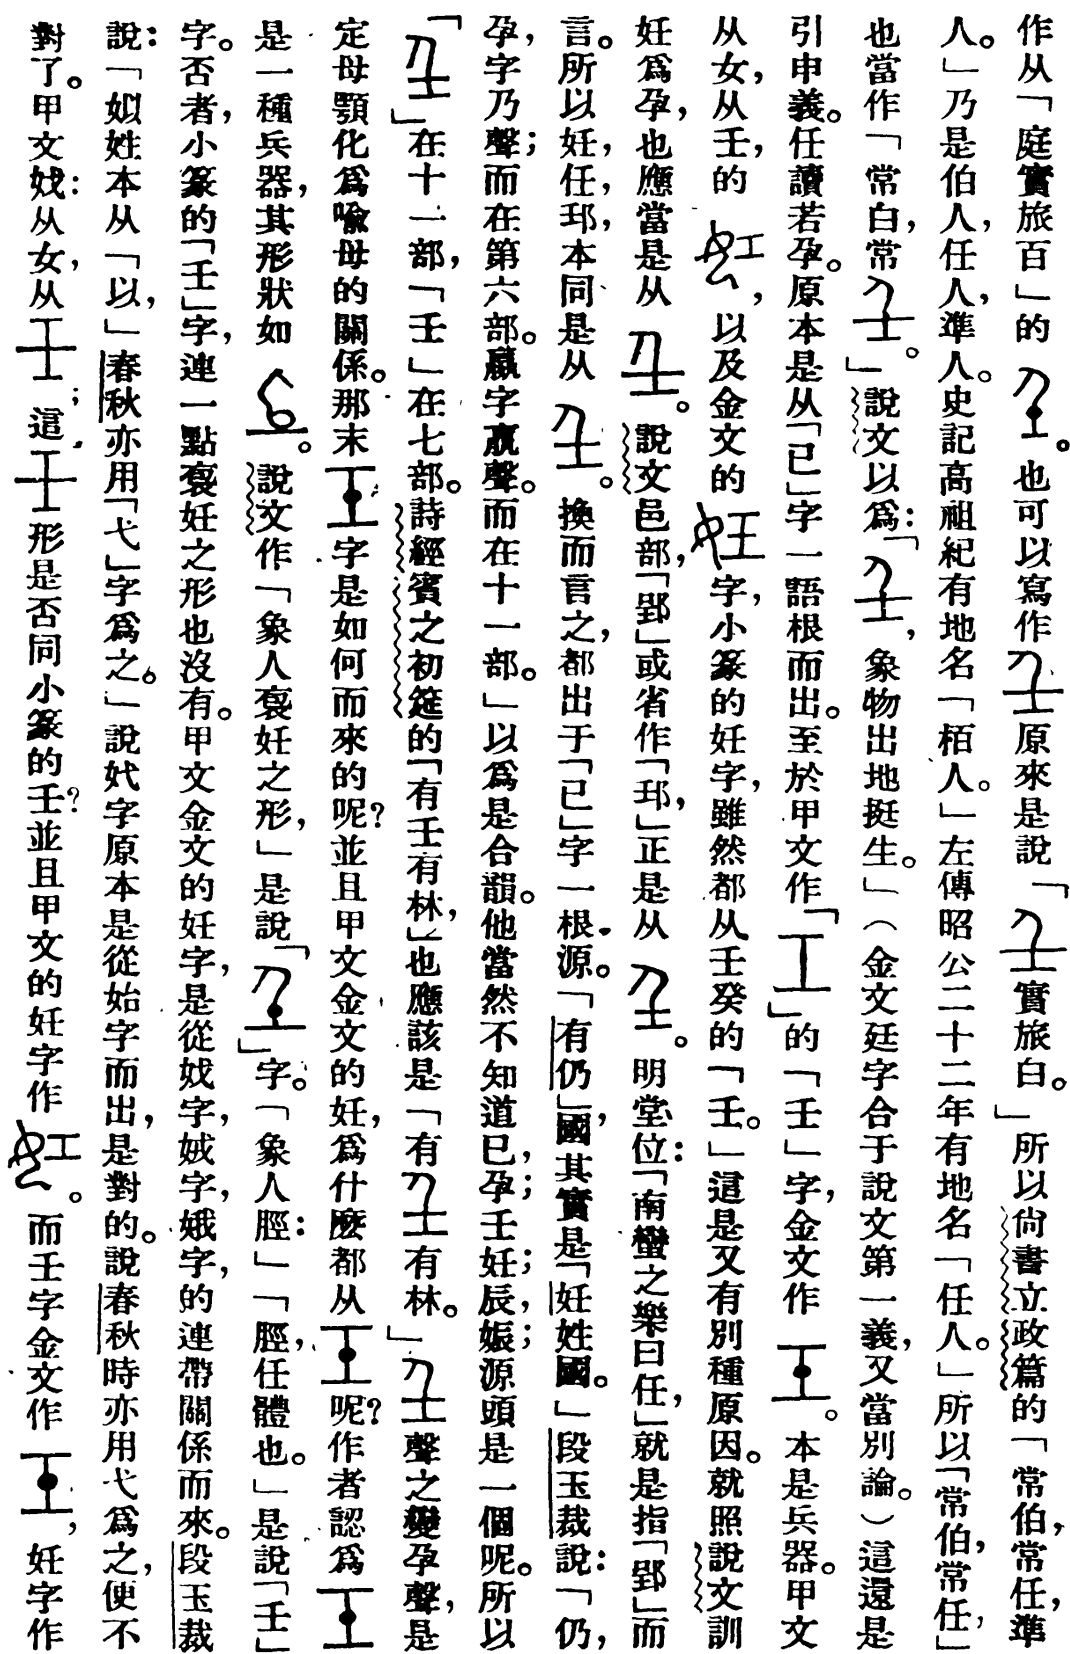 作从「庭實旅百」的。也可以寫作原來是說「實旅白。」所以尙書立政篇的「常伯,常任,準
人。」乃是伯人,任人,準人。史記高祖紀有地名「栢人。」左傳昭公二十二年有地名「任人。」所以「常伯,常任」
也當作「常白,常。」說文以爲:「,象物出地挺生。」(金文廷字合于說文第一義,又當別論。)這還是
引申義。任讀若孕。原本是从「已」字一語根而出。至於甲文作「工」的「壬」字,金文作。本是兵器。甲文
从女,从壬,的,以及金文的字,小篆的妊字,雖然都从壬癸的「壬。」這是又有別種原因。就照說文訓
妊爲孕,也應當是从。說文邑部,「郢」或省作「𨛡,」正是从。明堂位:「南蠻之樂曰任,」就是指「郢」而
言。所以妊,任,𨛡,本同是从。換而言之,都出于「已」字一根源。「有仍」國其實是「妊姓國。」段玉裁說:「仍,
孕,字乃聲;而在第六部。贏字𣎆聲。而在十一部。」以爲是合韻。他當然不知道已,孕;壬妊;辰,娠;源頭是一個呢。所以
「」在十一部,「壬」在七部。詩經賓之初筵的「有壬有林,」也應該是「有有林。」聲之變孕聲,是
定母顎化爲喩母的關係。那末字是如何而來的呢?並且甲文金文的妊,爲什麽都从呢?作者認爲
是一種兵器,其形狀如。說文作「象人褱妊之形,」是說「」字。「象人脛:」「脛,任體也。」是說「壬」
字。否者,小篆的「壬」字,連一點褱妊之形也沒有。甲文金文的妊字,是從𡚱字,娀字,娥字,的連帶關係而來。段玉裁
說:「姒姓本从「以,」春秋亦用「弋」字爲之。」說妷字原本是從始字而出,是對的。說春秋時亦用弋爲之,便不
對了。甲文𡚱:从女,从;這形是否同小篆的壬?並且甲文的妊字作。而壬字金文作,妊字作